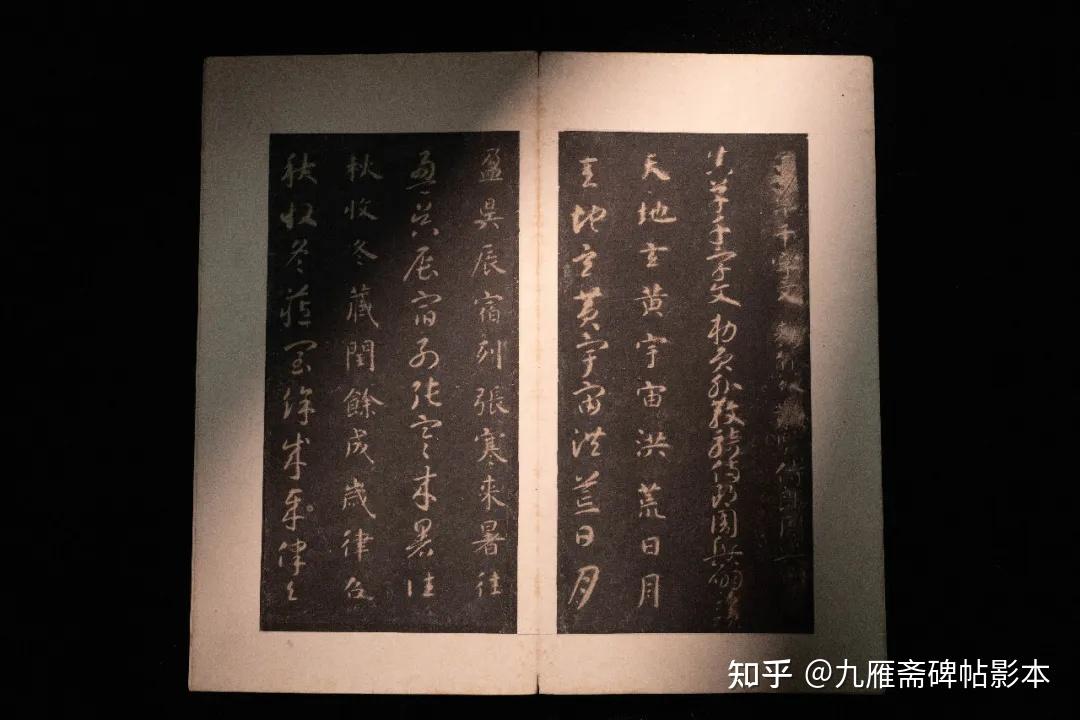 千字文 侍郎周
真草千字文 勅員外散騎侍郎周興嗣次
天地玄黃宇宙洪荒日月
天地玄黃宇宙洪荒日月
盈昃辰宿列張寒來暑往
盈昃辰宿列張寒來暑往
秋收冬藏閏餘成歲律召
秋收冬藏閏餘成歲律召
知乎 @九雁斋碑帖影本